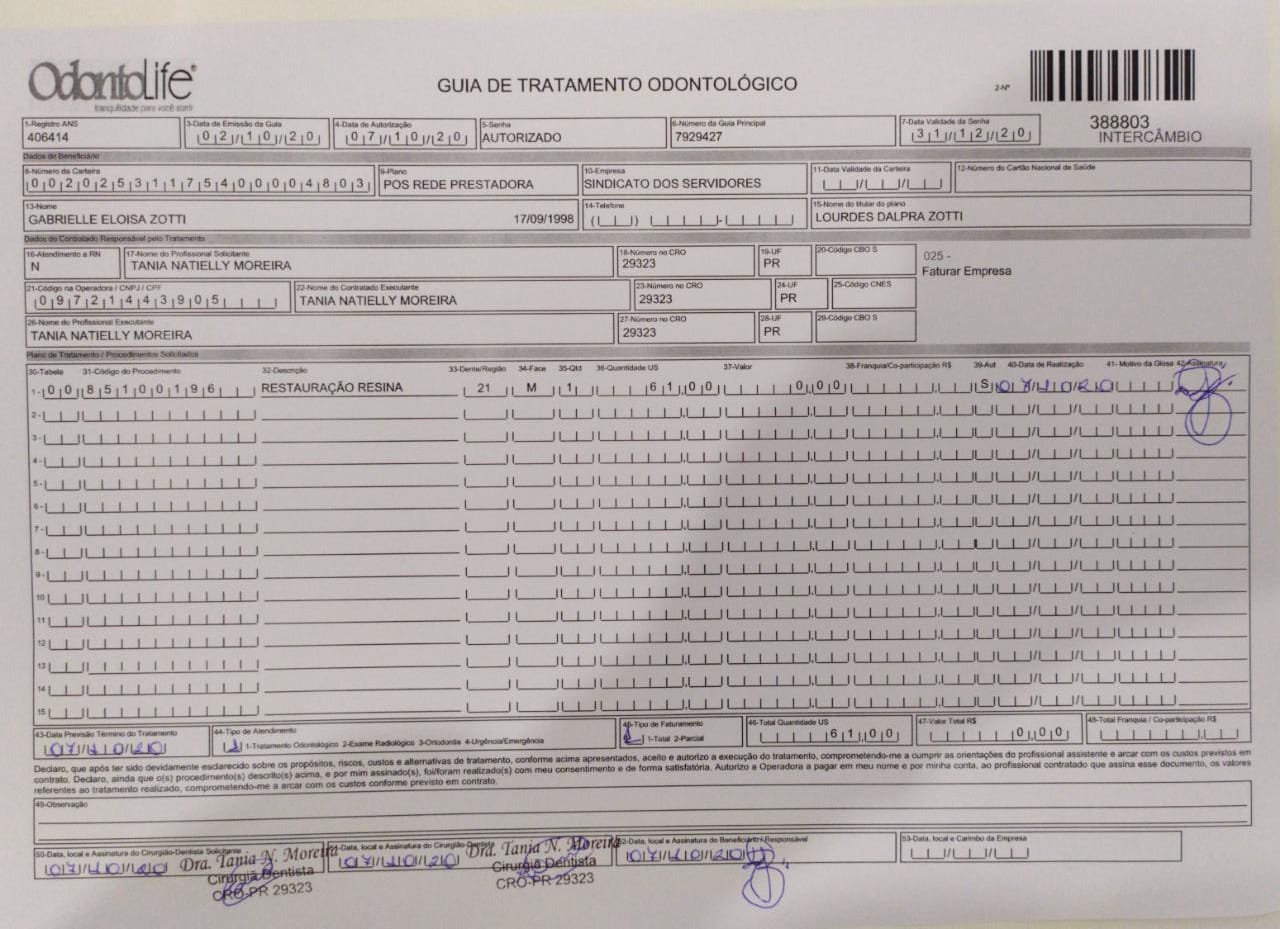 OdontoLife®
tranquilidade para você sorrir
GUIA DE TRATAMENTO ODONTOLÓGICO
2-Nº
388803
INTERCÂMBIO
1-Registro ANS 3-Data de Emissão da Guia 4-Data de Autorização 5-Senha 6-Número da Guia Principal 7-Data Validade da Senha
406414 02/10/20 07/10/20 AUTORIZADO 7929427 31/12/20
Dados do Beneficiário
8-Número da Carteira 9-Plano 10-Empresa 11-Data Validade da Carteira 12-Número do Cartão Nacional de Saúde
00202531175400004803 POS REDE PRESTADORA SINDICATO DOS SERVIDORES
13-Nome 14-Telefone 15-Nome do titular do plano
GABRIELLE ELOISA ZOTTI 17/09/1998 LOURDES DALPRA ZOTTI
Dados do Contratado Responsável pelo Tratamento
16-Atendimento a RN 17-Nome do Profissional Solicitante 18-Número no CRO 19-UF 20-Código CBO S
N TANIA NATIELLY MOREIRA 29323 PR
025 -
Faturar Empresa
21-Código na Operadora / CNPJ / CPF 22-Nome do Contratado Executante 23-Número no CRO 24-UF 25-Código CNES
09721443905 TANIA NATIELLY MOREIRA 29323 PR
26-Nome do Profissional Executante 27-Número no CRO 28-UF 29-Código CBO S
TANIA NATIELLY MOREIRA 29323 PR
Plano de Tratamento / Procedimentos Solicitados
30-Tabela 31-Código do Procedimento 32-Descrição 33-Dente/Região 34-Face 35-Qtd 36-Quantidade US 37-Valor 38-Franquia/Co-participação R$ 39-Aut 40-Data de Realização 41- Motivo da Glosa 42-Assinatura
1- 00 85100196 RESTAURAÇÃO RESINA 21 M 1 61,00 0,00 S 07/10/20
2-
3-
4-
5-
6-
7-
8-
9-
10
11
12
13
14
15
43-Data Previsão Término do Tratamento 44-Tipo de Atendimento 45-Tipo de Faturamento 46-Total Quantidade US 47-Valor Total R$ 48-Total Franquia / Co-participação R$
07/10/20 1-Tratamento Odontológico 2-Exame Radiológico 3-Ortodontia 4-Urgência/Emergência 1-Total 2-Parcial 61,00 0,00
Declaro, que após ter sido devidamente esclarecido sobre os propósitos, riscos, custos e alternativas de tratamento, conforme acima apresentados, aceito e autorizo a execução do tratamento, comprometendo-me a cumprir as orientações do profissional assistente e arcar com os custos previstos em
contrato. Declaro, ainda que o(s) procedimento(s) descrito(s) acima, e por mim assinado(s), foi/foram realizado(s) com meu consentimento e de forma satisfatória. Autorizo a Operadora a pagar em meu nome e por minha conta, ao profissional contratado que assina esse documento, os valores
referentes ao tratamento realizado, comprometendo-me a arcar com os custos conforme previsto em contrato.
49-Observação
50-Data, local e Assinatura do Cirurgião-Dentista Solicitante Data, local e Assinatura do Cirurgião-Dentista 52-Data, local e Assinatura do Beneficiário / Responsável 53-Data, local e Carimbo da Empresa
07/10/20 Dra. Tania N. Moreira 07/10/20 Dra. Tania N. Moreira 07/10/20
Cirurgiã Dentista Cirurgiã Dentista
CRO-PR 29323 CRO-PR 29323